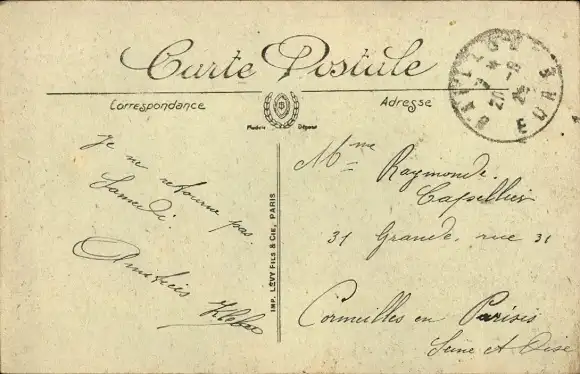 Carte Postale
Correspondance
Adresse
Modèle Déposé
Je ne retourne pas
Samedi.
Amitiés
Kléber
IMP. LÉVY FILS & CIE, PARIS
Mme Raymonde
Capellier
31 Grande rue 31
Cormeilles en Parisis
Seine et Oise
EURE